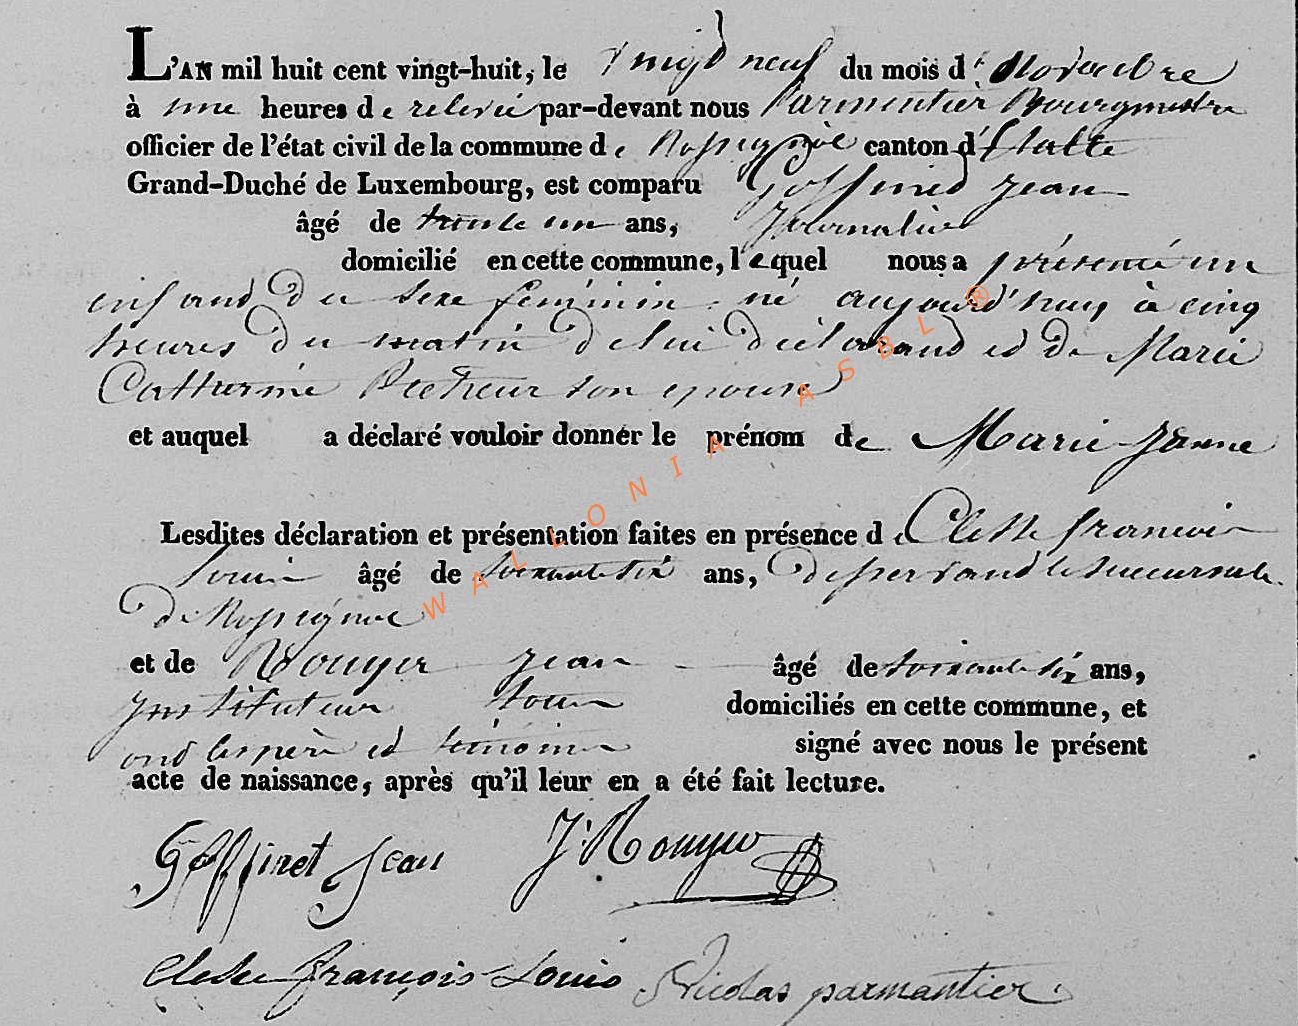 L'AN mil huit cent vingt-huit, le vingt neuf du mois de Novembre
à une heures de relevée par-devant nous Parmentier Bourgmestre
officier de l'état civil de la commune de Rossignol canton d'Etalle
Grand-Duché de Luxembourg, est comparu Goffinet Jean
âgé de trente un ans, Journalier
domicilié en cette commune, lequel nous a présenté un
enfant du sexe féminin né aujourd'huy à cinq
heures du matin de lui déclarant et de Marie
Catherine son epouse
et auquel a déclaré vouloir donner le prénom de Marie Janne
Lesdites déclaration et présentation faites en présence de Clesse francois
Louis âgé de soixante six ans, desservant le succursale
de Rossignol
et de Rouyer jean âgé de soixante six ans,
instituteur tous domiciliés en cette commune, et
ont les père et témoins signé avec nous le présent
acte de naissance, après qu'il leur en a été fait lecture.
Goffinet Jean J. Rouyer
Clesse françois Louis Nicolas parmantier
WALLONIA ASBL ®